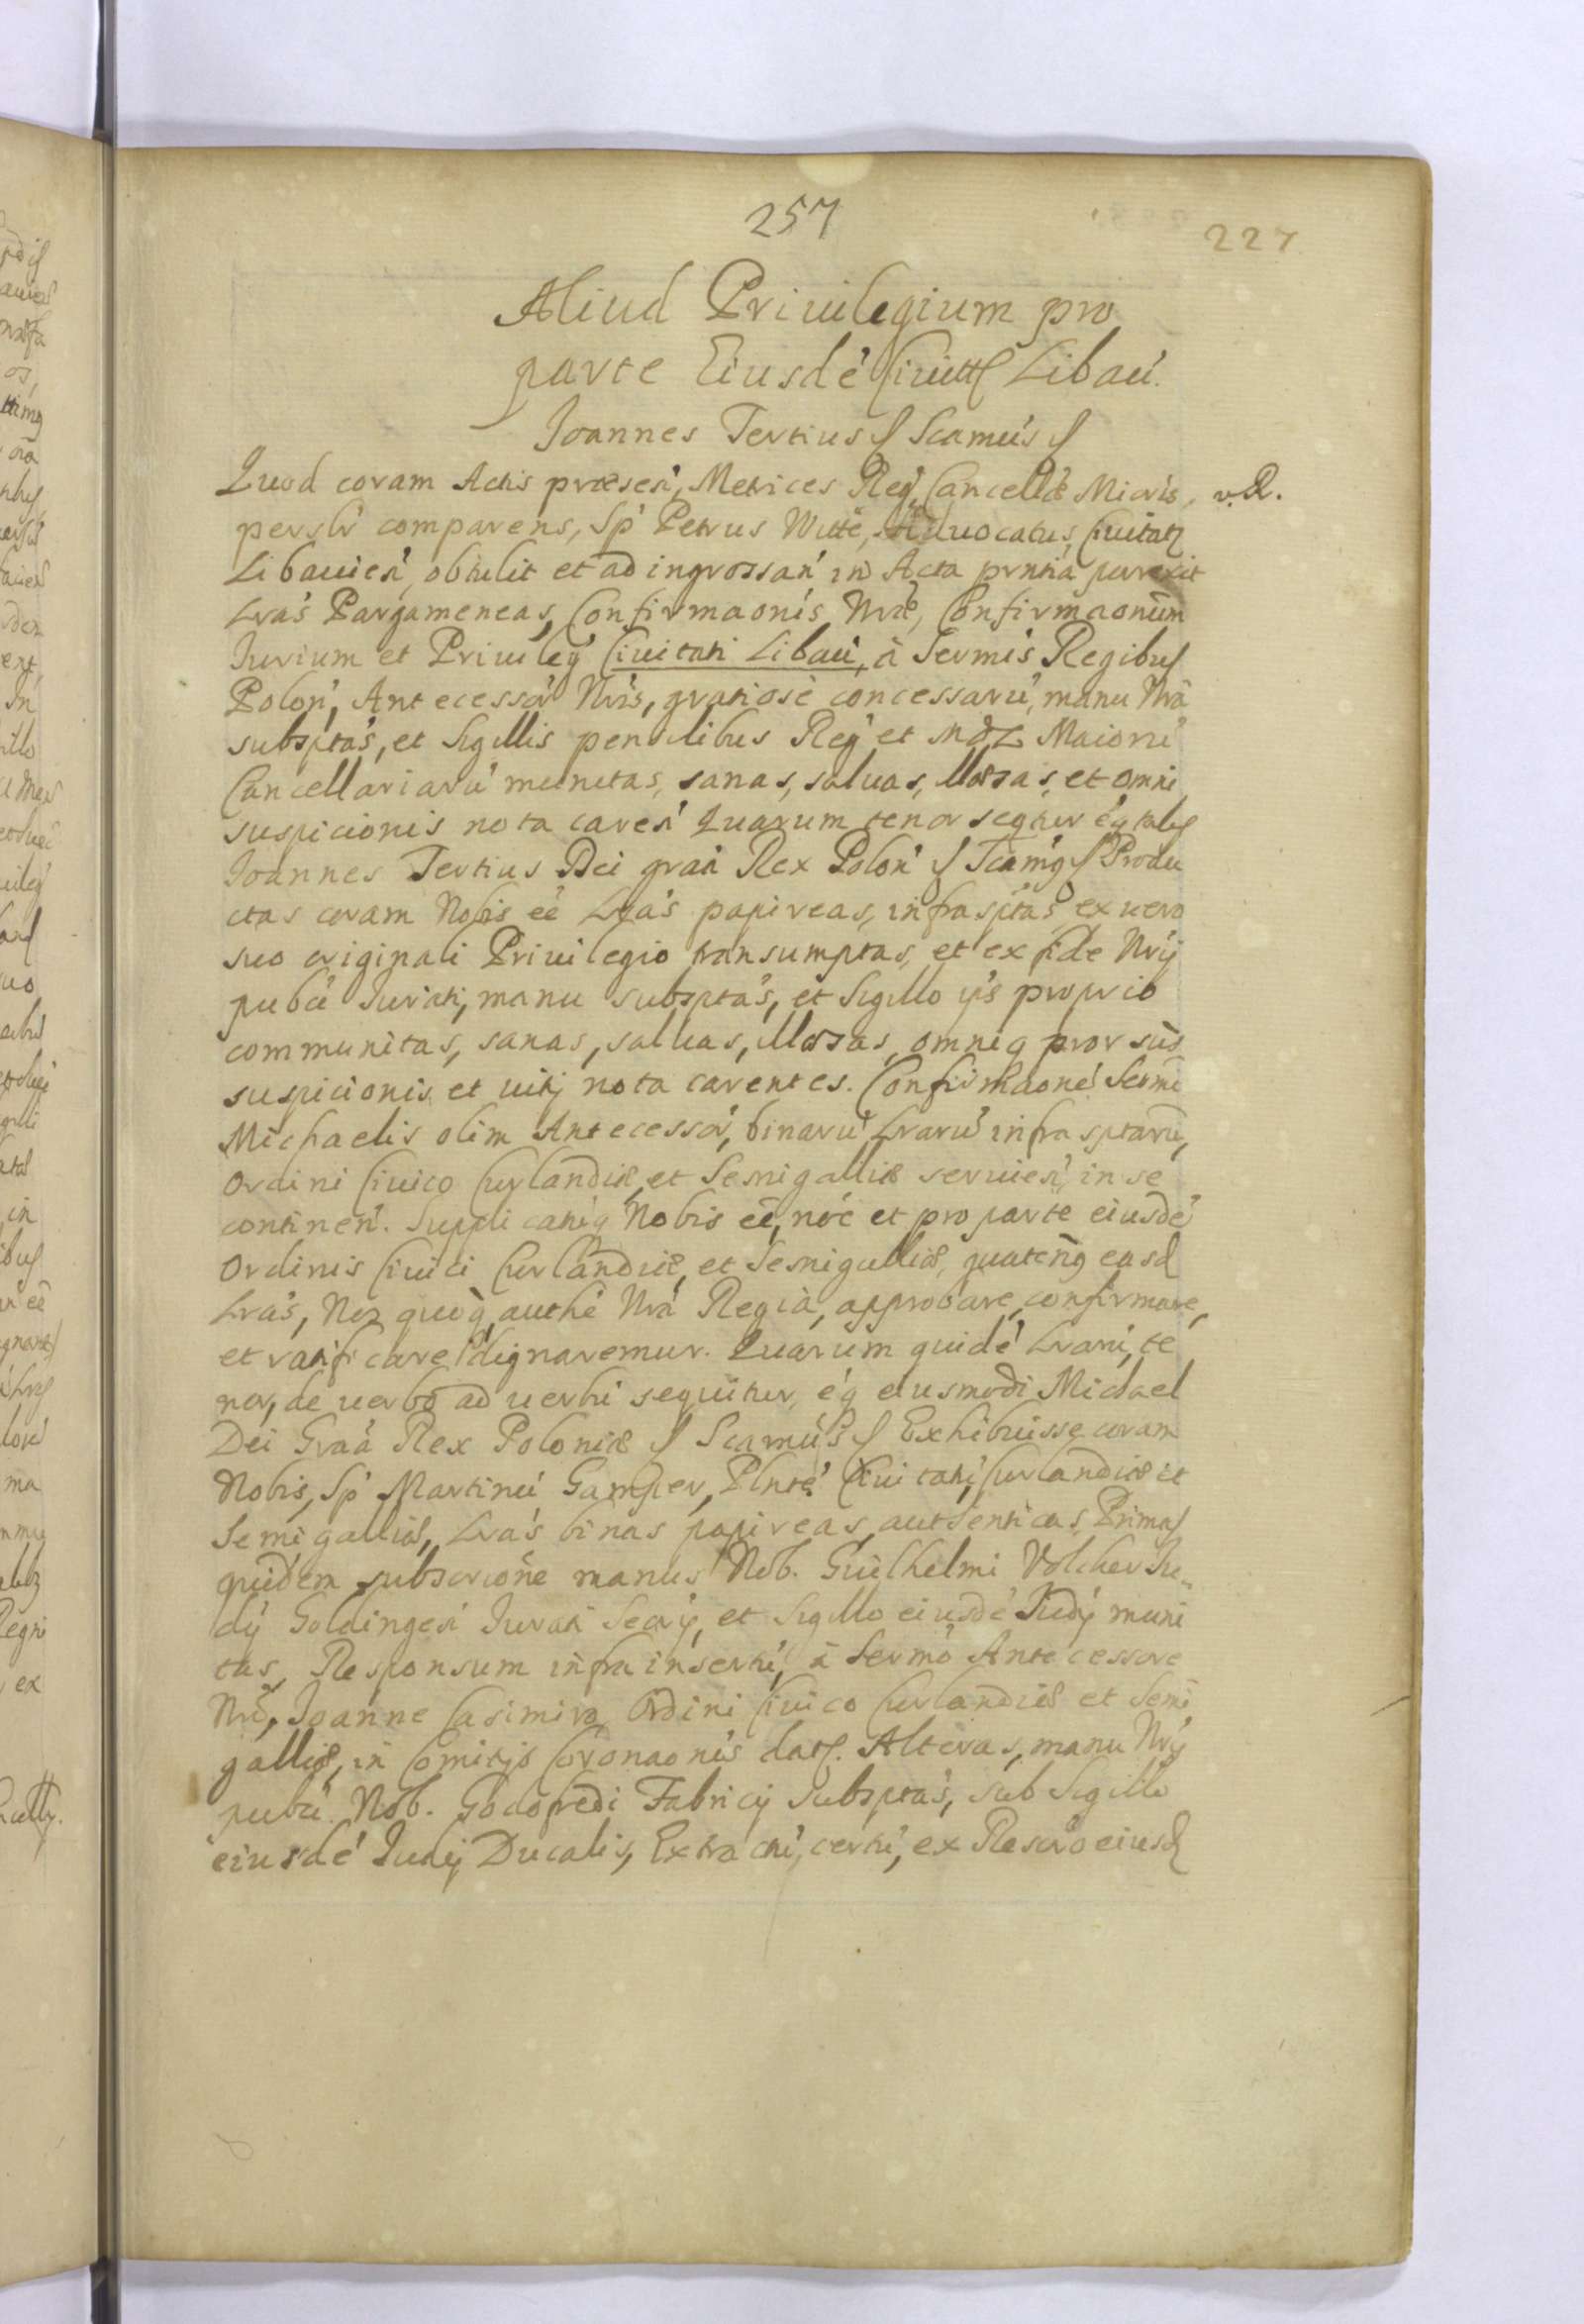 257
227
Aliud Priuilegium pro
parte Eiusdé Ciuitt Libaú.
Joannes Tertius Scamús
Quod coram Actis præseń, Metrices Reg, Cancellæ Mioris, v.R.
persłr comparens, Sp Petrus Witte, Aduocatus, Ciuitatz
Libauień, obtulit et ad ingrossań in Acta prntia porrexit
Lrás Pargameneas, Confirmaonis Nræ, Confirmaonum
Iurium et Priuileg Ciuitati Libaú, à Sermis Regibus
Polon, Antecessor Nris, gratiosè concessarú, manu Nrâ
subsptás, et Sigillis pensilibus Reg et MDL Maiorú
Cancellariarú munitas, sanas, saluas, illæsas, et omni
suspicionis nota careń Quarum tenor seqtur éq talis
Joannes Tertius Dei graâ Rex Polon Scamg Produ
ctas coram Nobis eé Lrás papireas, infrasptás, ex uero
suo originali Priuilegio transumptas, et ex fide Nrij
pubci Iurati, manu subsptás, et Sigillo ijs proprio
communitas, sanas, saluas, illæsas, omniq prorsùs
suspicionis et uitij nota carentes. Confirmaoné Sermi
Michaelis olim Antecessor, binarú Lrarú infrasptarú,
Ordini Ciuico Curlandiæ, et Semigalliæ seruień, in se
continen. Supplicatúq Nobis eé, noé et pro parte eiusdé
Ordinis Ciuici Curlandiæ, et Semigalliæ, quatenq easd
Lrás, Nos quoq authé Nrâ Regià, approbare, confirmare,
et ratificare dignaremur. Quarum quidé Lrarú, te
nor, de uerbo ad uerbú sequitur, éq eiusmodi Michael
Dei Graâ Rex Poloniæ Scamús Exhibuisse coram
Nobis, Sp Martinú Gamper, Plnté Ciuitatú, Curlandiæ et
Semigalliæ, Lrás binas papireas, authenticas, Primas
quidem subscrione manus Nob. Guilhelmi Volcher Iu
dij Goldingeń Iurati Secrij, et Sigillo eiusdé Iudij muni
tas, Responsum infra insertú, à Sermo Antecessore
Nro, Joanne Casimiro Ordini Ciuico Curlandiæ et Semi
galliæ, in Comitijs Coronaonis dat. Alteras, manu Nrij
pubci Nob. Godofredi Fabricij Subsptás, sub Sigillo
eiusdé Iudij Ducalis, Extractú, certú, ex Rescrò eiusd